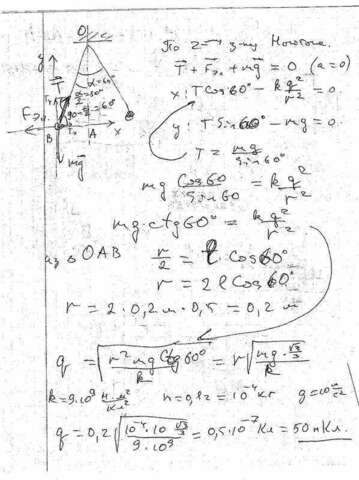 O
y
α=60°
T
α/2=30°
90-α/2=60°
Fэл.
B
A
x
mg
По 2-му з-ну Ньютона.
T + Fэл + mg = 0 (a=0)
x: T Cos60° - k q²/r² = 0
y: T Sin60° - mg = 0
T = mg/Sin60°
mg Cos60/Sin60 = k q²/r²
mg·ctg60° = k q²/r²
из △OAB r/2 = l Cos60°
r = 2l Cos60°
r = 2·0,2м·0,5 = 0,2 м
q = √(r² mg Ctg60°/k) = r√(mg·√3/3/k)
k=9·10⁹ Н·м²/Кл² m=0,1г=10⁻⁴кг g=10 м/с²
q = 0,2 √(10⁻⁴·10 √3/3/9·10⁹) = 0,5·10⁻⁷Кл = 50нКл.